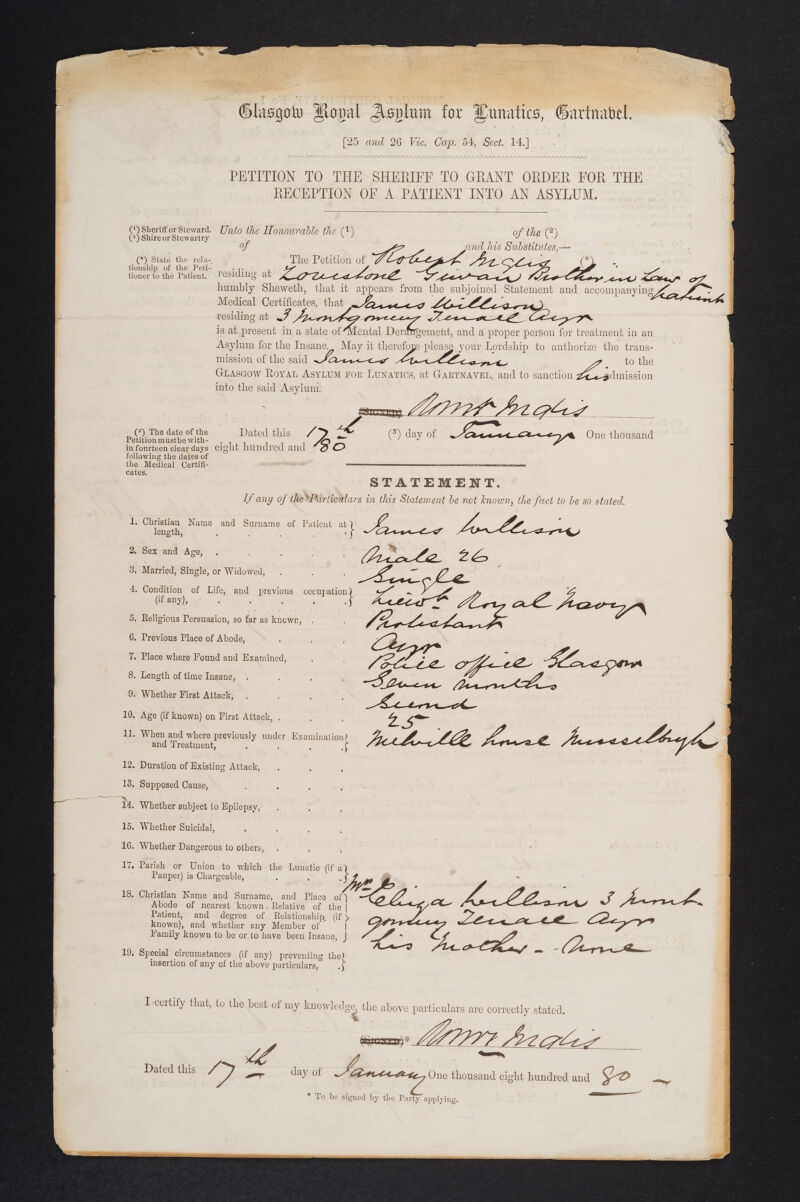 Glasgow Royal Asylum for Lunatics, Gartnavel.
[25 and 26 Vic. Cap. 54, Sect. 14.]
PETITION TO THE SHERIFF TO GRANT ORDER FOR THE
RECEPTION OF A PATIENT INTO AN ASYLUM.
(¹) Sheriff or Steward.
(²) Shire or Stewartry
Unto the Honourable the (¹) of the (²)
of and his Substitutes,—
(³) State the rela-
tionship of the Peti-
tioner to the Patient.
The Petition of Robert Inglis (³)
residing at Lovestone Girvan Brother in Law of
humbly Sheweth, that it appears from the subjoined Statement and accompanying patient
Medical Certificates, that James Willison
residing at 3 Montgomery Terrace Ayr
is at present in a state of Mental Derangement, and a proper person for treatment in an
Asylum for the Insane. May it therefore please your Lordship to authorize the trans-
mission of the said James Willison to the
GLASGOW ROYAL ASYLUM FOR LUNATICS, at GARTNAVEL, and to sanction his admission
into the said Asylum.
(SIGNED) Robert Inglis
(³) The date of the
Petition must be with-
in fourteen clear days
following the dates of
the Medical Certifi-
cates.
Dated this 17th (³) day of January One thousand
eight hundred and 80
STATEMENT.
If any of the Particulars in this Statement be not known, the fact to be so stated.
1. Christian Name and Surname of Patient at
length, James Willison
2. Sex and Age, Male 26
3. Married, Single, or Widowed, Single
4. Condition of Life, and previous occupation
(if any), Lieut Royal Navy
5. Religious Persuasion, so far as known, Protestant
6. Previous Place of Abode, Ayr
7. Place where Found and Examined, Police office Glasgow
8. Length of time Insane, Seven months
9. Whether First Attack, Second
10. Age (if known) on First Attack, 25
11. When and where previously under Examination
and Treatment, Melville house Musselburgh
12. Duration of Existing Attack,
13. Supposed Cause,
14. Whether subject to Epilepsy,
15. Whether Suicidal,
16. Whether Dangerous to others,
17. Parish or Union to which the Lunatic (if a
Pauper) is Chargeable,
18. Christian Name and Surname, and Place of
Abode of nearest known Relative of the
Patient, and degree of Relationship, (if
known), and whether any Member of
Family known to be or to have been Insane,
Mrs Eliza Willison 3 Mont-
gomery Terrace Ayr
his Mother - None
19. Special circumstances (if any) preventing the
insertion of any of the above particulars,
I certify that, to the best of my knowledge, the above particulars are correctly stated.
(SIGNED)* Robert Inglis
Dated this 17th day of January One thousand eight hundred and 80
* To be signed by the Party applying.